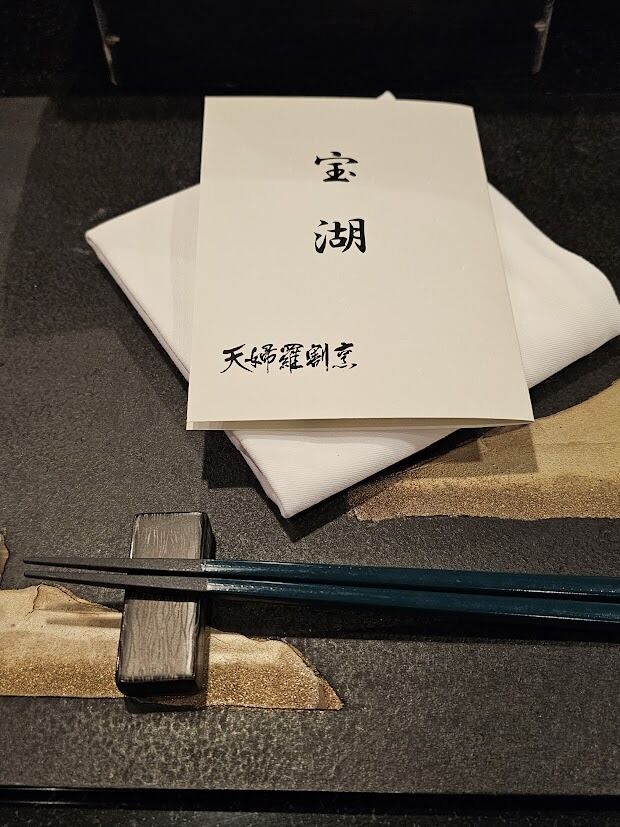 宝湖
天婦羅割烹